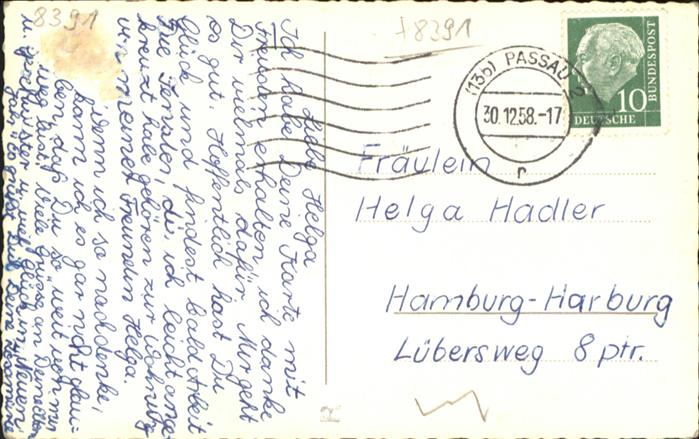 8391
+8391
(13b) PASSAU 2
30.12.58.-17
r
10
DEUTSCHE
BUNDESPOST
Liebe Helga
Ich habe Deine Karte mit
Freuden erhalten, ich danke
Dir vielmals dafür. Mir geht
es gut. Hoffentlich hast Du
Glück und findest bald Arbeit
Die Fenster, die ich leicht ange-
kreuzt habe gehören zur Wohnung
von meiner Freundin Helga.
Wenn ich so nachdenke,
kann ich es gar nicht glau-
ben, daß Du so weit von mir
weg bist. Viele Grüsse an Deine Eltern
u. Geschwister und viel Glück im Neuen
Jahr
Fräulein
Helga Hadler
Hamburg-Harburg
Lübersweg 8 ptr.